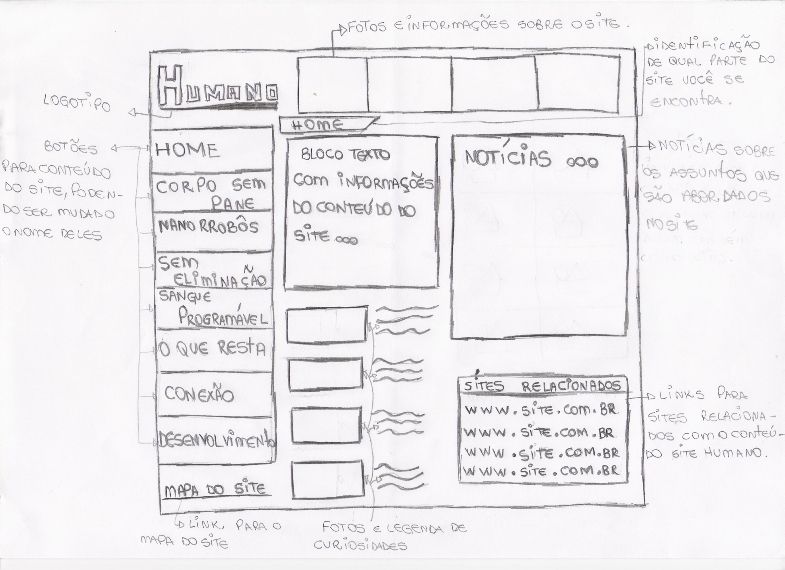 FOTOS E INFORMAÇÕES SOBRE O SITE.
HUMANO
IDENTIFICAÇÃO
DE QUAL PARTE DO
SITE VOCÊ SE
ENCONTRA.
LOGOTIPO
HOME
BOTÕES
PARA CONTEÚDO
DO SITE, PODEN-
DO SER MUDADO
O NOME DELES
HOME
CORPO SEM
PANE
NANORROBÔS
SEM
ELIMINAÇÃO
SANGUE
PROGRAMÁVEL
O QUE RESTA
CONEXÃO
DESENVOLVIMENTO
MAPA DO SITE
BLOCO TEXTO
COM INFORMAÇÕES
DO CONTEÚDO DO
SITE...
NOTÍCIAS ...
NOTÍCIAS SOBRE
OS ASSUNTOS QUE
SÃO ABORDADOS
NO SITE
SÍTES RELACIONADOS
WWW.SITE.COM.BR
WWW.SITE.COM.BR
WWW.SITE.COM.BR
WWW.SITE.COM.BR
LINKS PARA
SITES RELACIONA-
DOS COM O CONTEÚ-
DO SITE HUMANO.
LINK, PARA O
MAPA DO SITE
FOTOS E LEGENDA DE
CURIOSIDADES